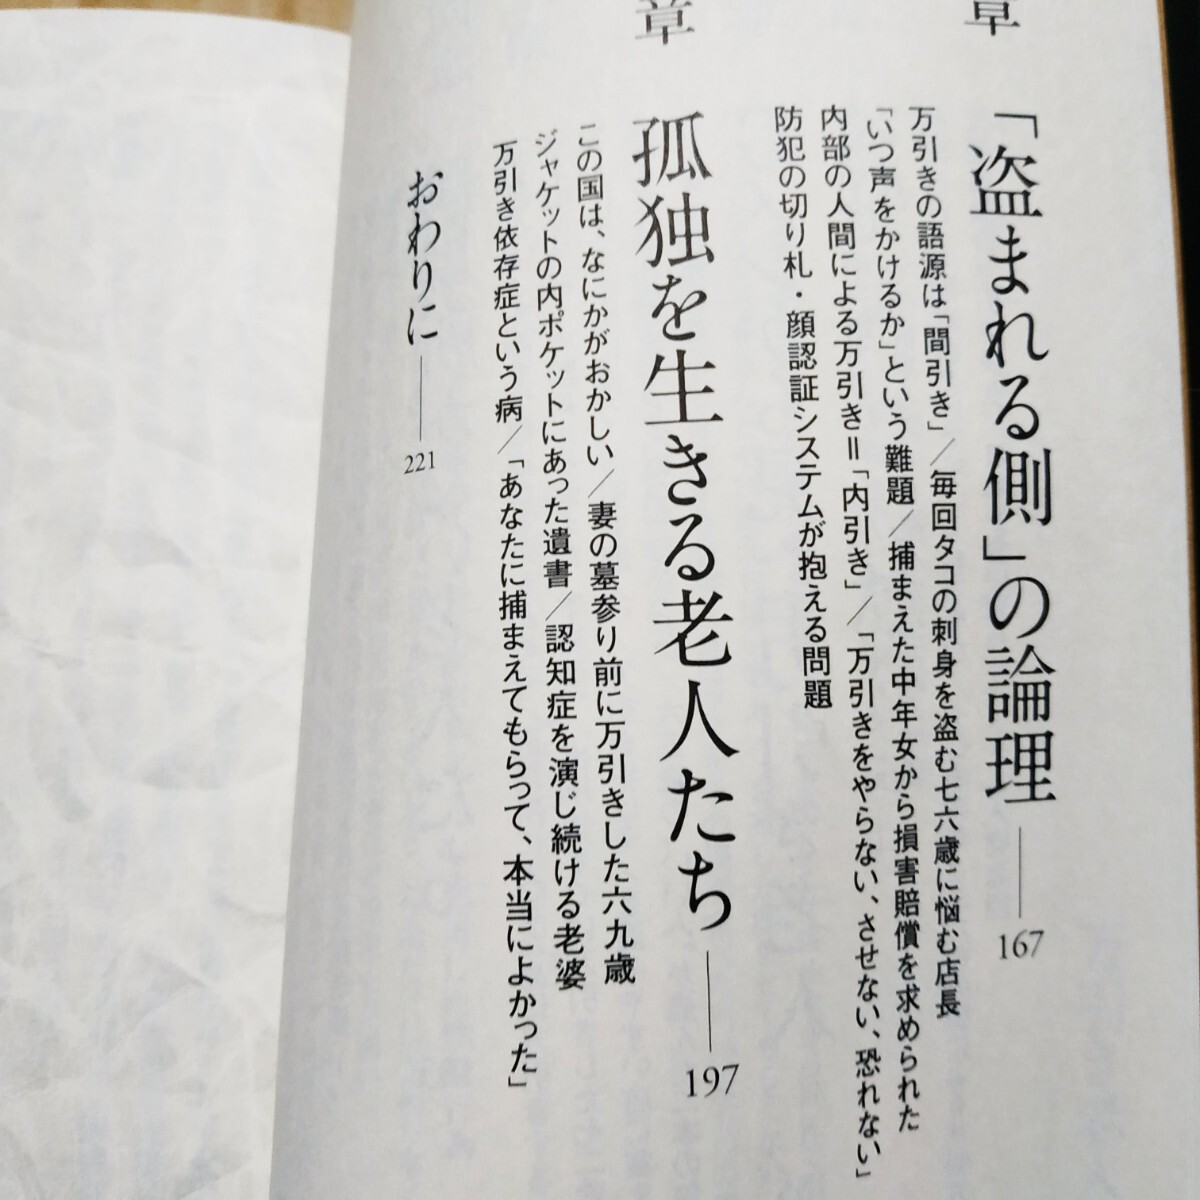 章
「盗まれる側」の論理 167
万引きの語源は「間引き」／毎回タコの刺身を盗む七六歳に悩む店長
「いつ声をかけるか」という難題／捕まえた中年女から損害賠償を求められた
内部の人間による万引き＝「内引き」／「万引きをやらない、させない、恐れない」
防犯の切り札・顔認証システムが抱える問題
章
孤独を生きる老人たち 197
この国は、なにかがおかしい／妻の墓参り前に万引きした六九歳
ジャケットの内ポケットにあった遺書／認知症を演じ続ける老婆
万引き依存症という病／「あなたに捕まえてもらって、本当によかった」
おわりに 221